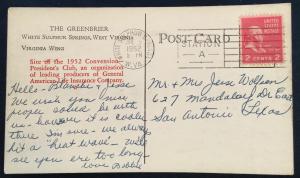 THE GREENBRIER
WHITE SULPHUR SPRINGS, WEST VIRGINIA
VIRGINIA WING
SITE OF THE 1952 CONVENTION
PRESIDENT'S CLUB, AN ORGANIZATION
OF LEADING PRODUCERS OF GENERAL
AMERICAN LIFE INSURANCE COMPANY.
Hello - Blanche & Jesse
We wish you nice
people could be with
us - however it is cooler
there I'm sure - we always
hit a "heat wave" - will
see you are too long
love Debbie
POST CARD
STATION
A
1952
W.VA.
2 CENTS 2
Mr & Mrs Jesse
627 Mandalay Dr East
San Antonio Texas